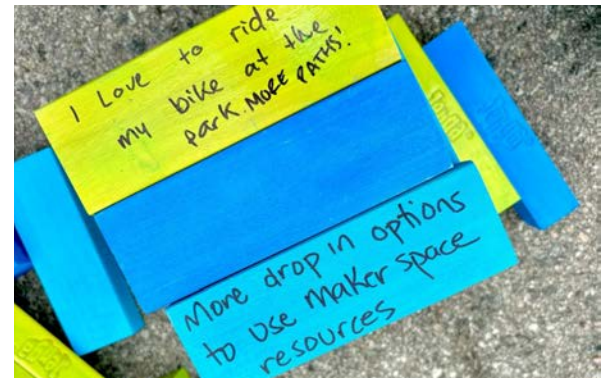 I Love to ride
my bike at the
park. MORE PATHS!
More drop in options
to use maker space
resources
Jenga
Jenga